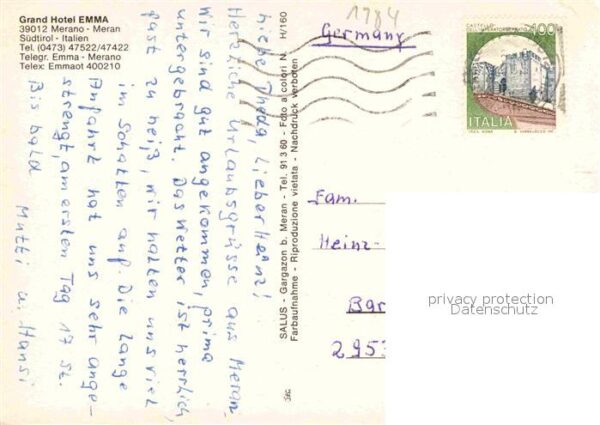 Grand Hotel EMMA
39012 Merano - Meran
Südtirol - Italien
Tel. (0473) 47522/47422
Telegr. Emma - Merano
Telex: Emmaot 400210
1984
Germany
CASTELLO
100
ITALIA
Liebe Thea, Lieber Heinz!
Herzliche Urlaubsgrüsse aus Meran.
Wir sind gut angekommen, prima
untergebracht. Das Wetter ist herrlich,
fast zu heiß, wir halten uns viel
im Schatten auf. Die lange
Anfahrt hat uns sehr ange-
strengt, am ersten Tag 17 St.
Bis bald
Mutti u. Hansi
SALUS - Gargazon b. Meran - Tel. 91360 - Foto a colori N. H/160
Farbaufnahme - Riproduzione vietata - Nachdruck verboten
Fam.
Heinz-
Bar
295
privacy protection
Datenschutz